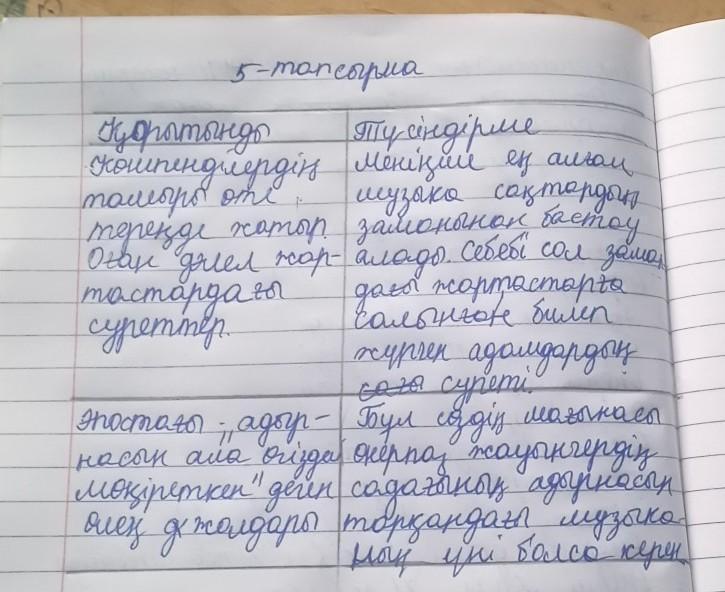 5-тапсырма
Қорытынды
Көшпенділердің
тамыры өте
тереңде жатыр.
Оған дәлел жар-
тастардағы
суреттер.
Түсіндірме
Меніңше ең алғаш
музыка сақтардың
заманынан бастау
алады. Себебі сол заман
дағы жартастарға
салынған билеп
жүрген адамдардың
суреті.
Эпостағы „адыр-
насын ала өгіздей
мөңіреткен" деген
өлең жолдары
Бұл сөздің мағынасы
өнерпаз жауынгердің
садағының адырнасын
тартқандағы музыка
ның үні болса керек